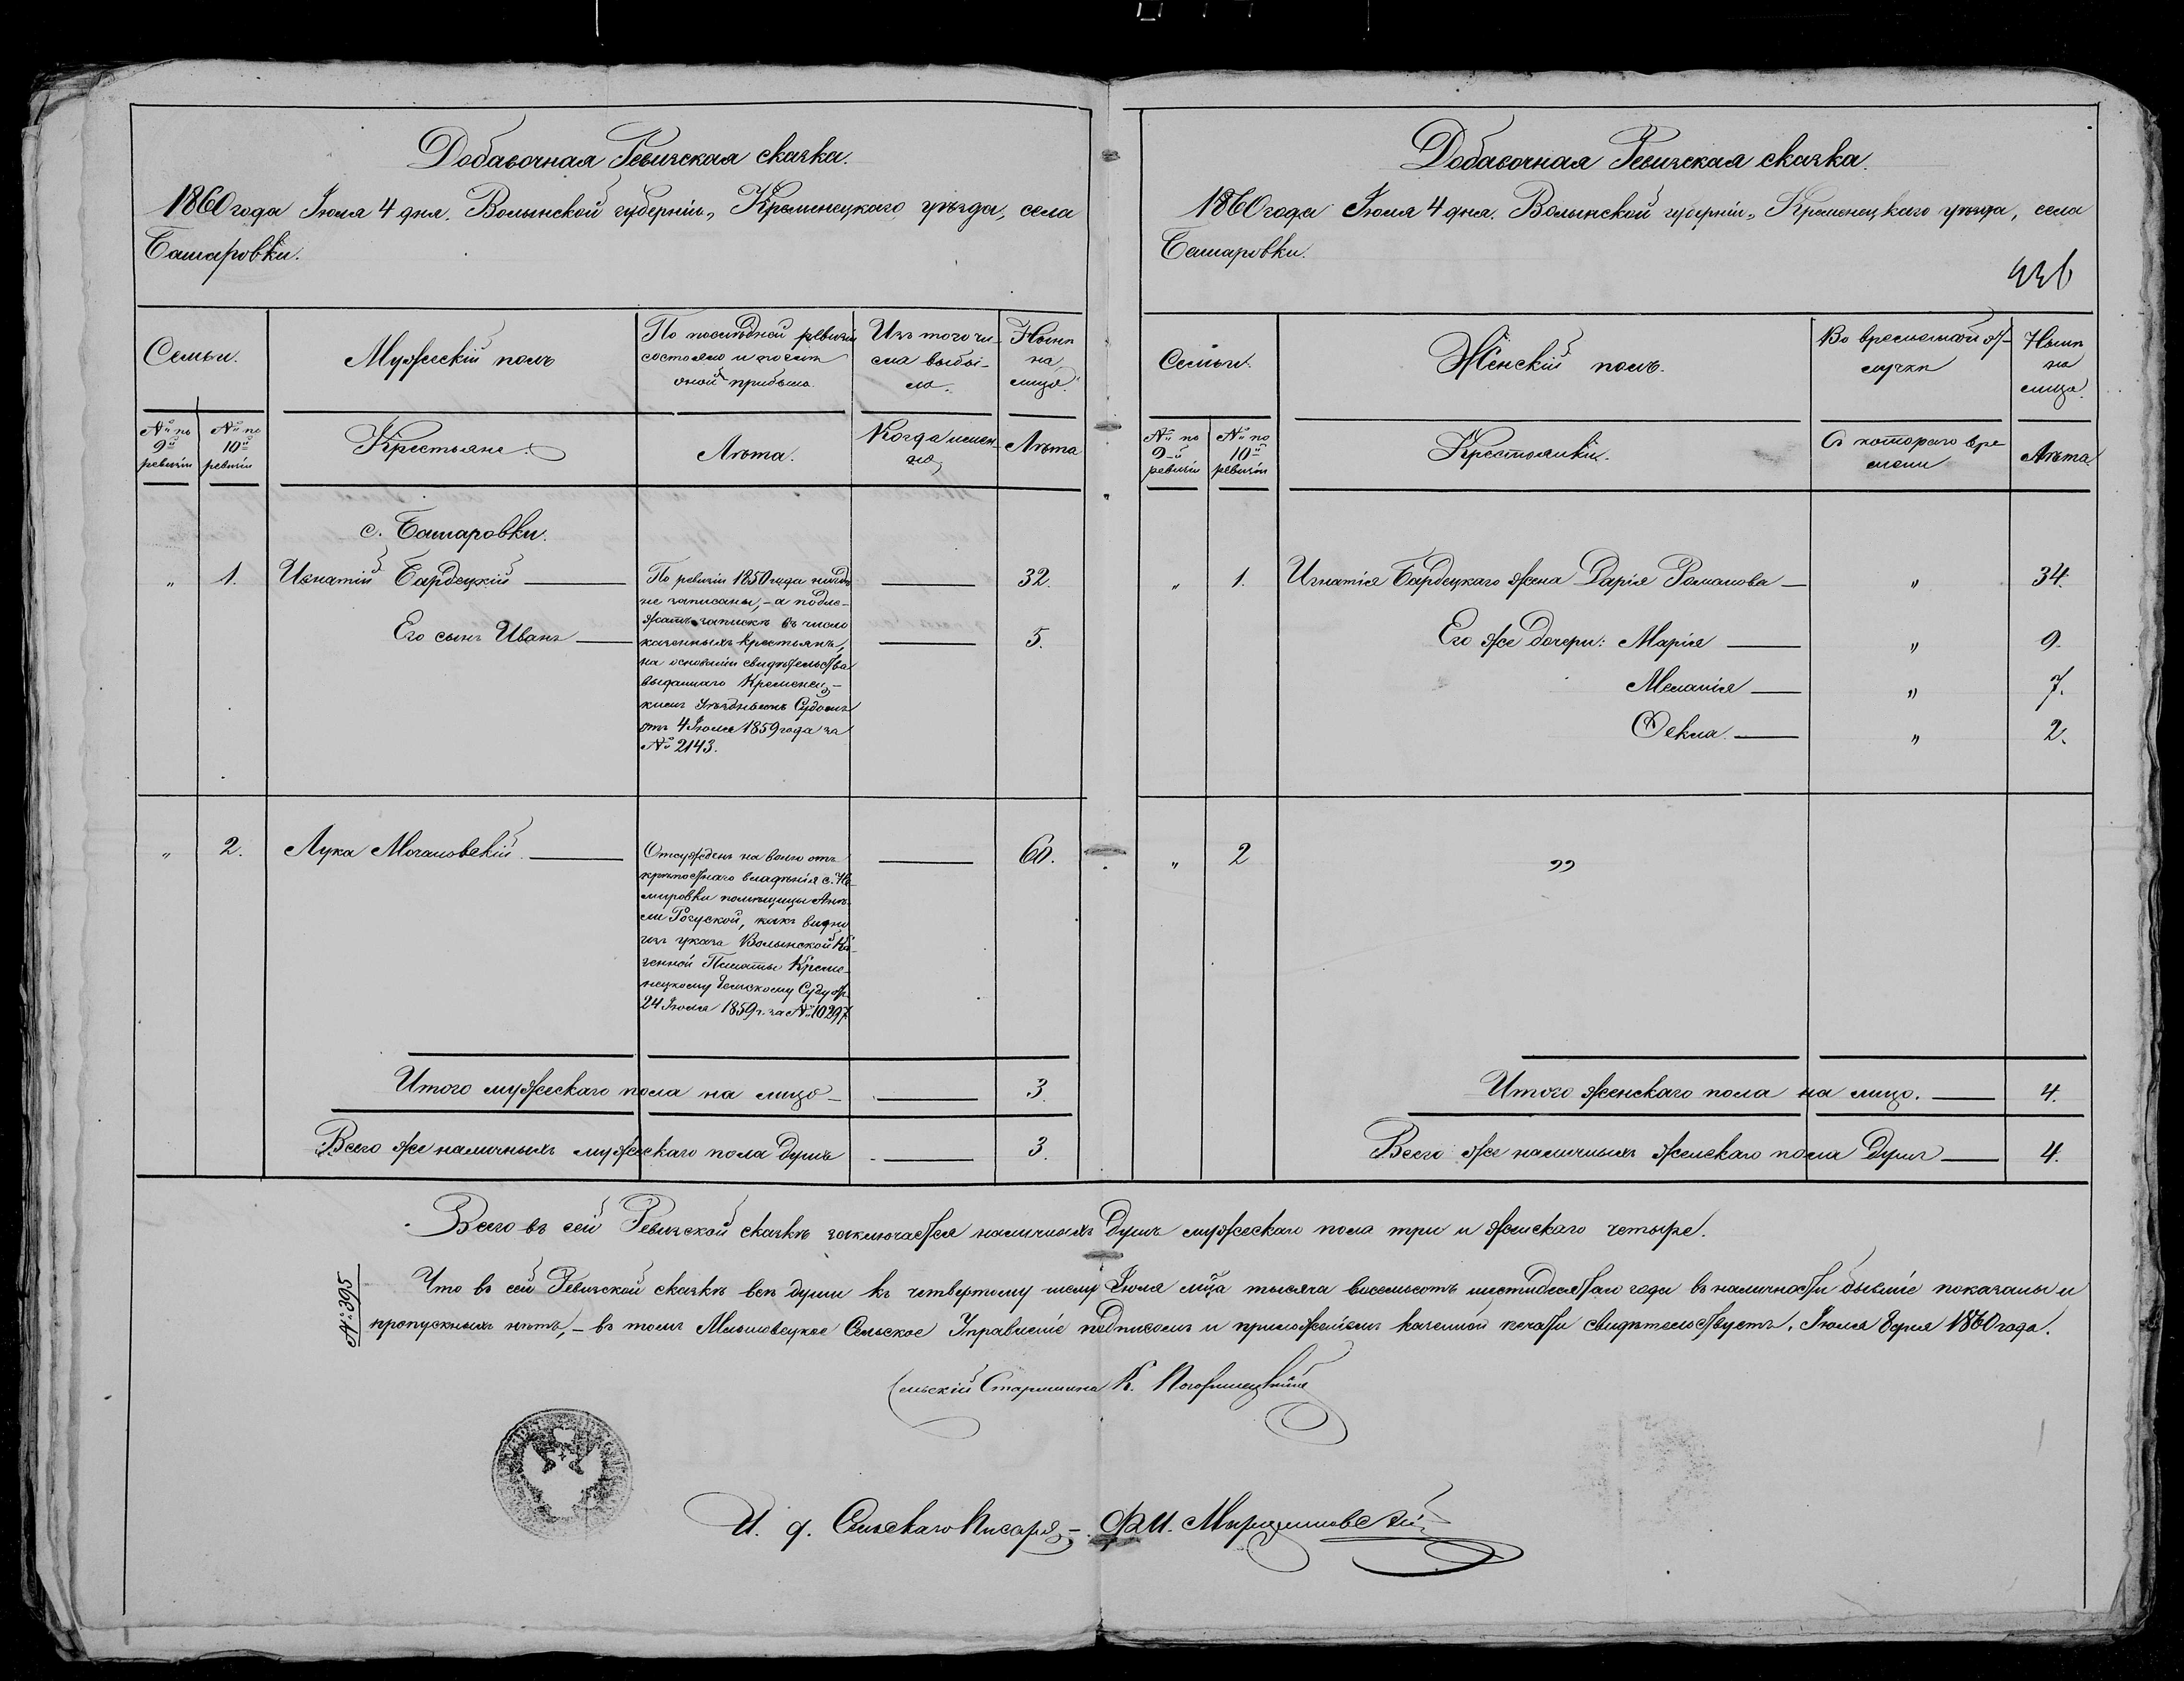 Добавочная Ревизская сказка.
1860 года Іюля 4 дня. Волынской губерніи, Кременецкаго уѣзда, села
Башаровки.
Семьи.
Мужескій полъ
По послѣдней ревизіи
состояло и послѣ
оной прибыло.
Изъ того чи-
сла выбы-
ло.
Нынѣ
на
лицо.
№ по
9й
ревизіи
№ по
10й
ревизіи
Крестьяне.
Лѣта.
Когда имен-
но
Лѣта
с. Башаровки.
„ 1. Игнатій Бардецкій 32.
Его сынъ Иванъ 5.
По ревизіи 1850 года нигдѣ
не записаны, - а подле-
жатъ запискѣ въ число
казенныхъ крестьянъ,
на основаніи свидѣтельства
выданнаго Кременец-
кимъ Уѣзднымъ Судомъ
отъ 4 Іюля 1859 года за
№ 2143.
„ 2. Лука 60.
Отсужденъ на волю отъ
крѣпостнаго владѣнія с. Не-
мировки помѣщицы Анѣ-
ли какъ видно
изъ указа Волынской Ка-
зенной Палаты Креме-
нецкому Земскому Суду отъ
24 Іюля 1859 г. за № 10297.
Итого мужескаго пола на лицо - 3.
Всего же наличныхъ мужескаго пола душъ 3.
Добавочная Ревизская сказка.
1860 года Іюля 4 дня. Волынской губерніи, Кременецкаго уѣзда, села
Башаровки.
436
Семьи.
Женскій полъ.
Во временной от-
лучкѣ
Нынѣ
на
лицо.
№ по
9-й
ревизіи
№ по
10й
ревизіи
Крестьянки.
Съ котораго вре
мени
Лѣта.
„ 1. Игнатія Бардецкаго жена Дарія Романова - „ 34.
Его же дочери: Марія „ 9.
Меланія „ 7.
Ѳекла. „ 2.
„ 2 „
Итого женскаго пола на лицо. 4.
Всего же наличныхъ женскаго пола душъ 4.
Всего въ сей Ревизской сказкѣ заключается наличныхъ душъ мужескаго пола три и женскаго четыре.
№ 395
Что въ сей Ревизской сказкѣ всѣ души къ четвертому числу Іюля мца тысяча восемьсотъ шестидесятаго года въ наличности бывшіе показаны и
пропускныхъ нѣтъ, - въ томъ Сельское Управленіе подписомъ и приложеніемъ казенной печати свидѣтельствуетъ. Іюля 8 дня 1860 года.
Сельскій Старшина К.
И. д. Сельскаго Писаря, -